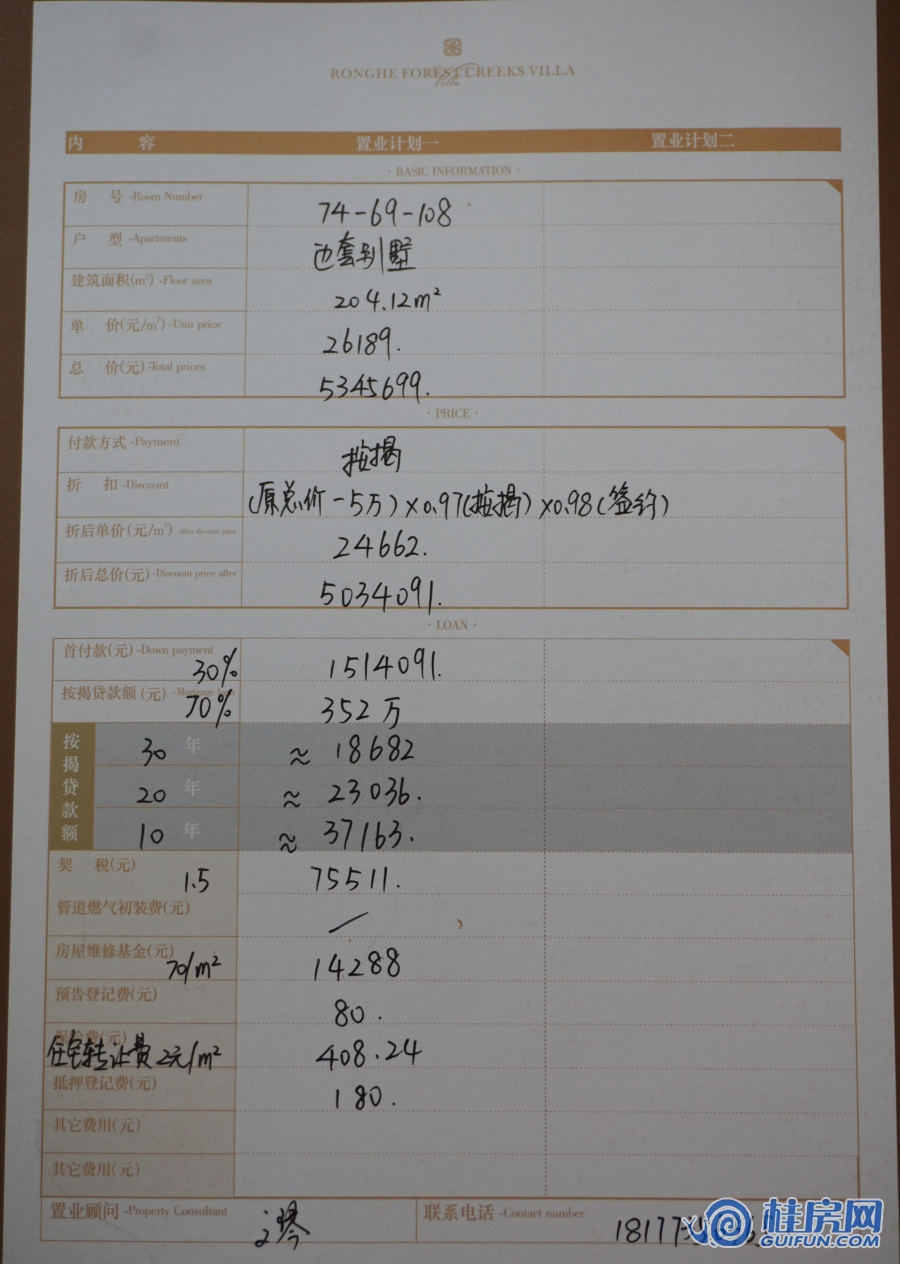 RONGHE FOREST CREEKS VILLA
Villa
内 容 置业计划一 置业计划二
· BASIC INFORMATION ·
房 号 -Room Number 74-69-108
户 型 -Apartments 边套别墅
建筑面积(m²) -Floor area 204.12m²
单 价(元/m²) -Unit price 26189.
总 价(元) -Total prices 5345699.
· PRICE ·
付款方式 -Payment 按揭
折 扣 -Discount (原总价-5万)×0.97(按揭)×0.98(签约)
折后单价(元/m²) -After discount price 24662.
折后总价(元) -Discount price after 5034091.
· LOAN ·
首付款(元) -Down payment 30% 1514091.
按揭贷款额(元) 70% 352万
按揭贷款额
30 年 ≈ 18682
20 年 ≈ 23036.
10 年 ≈ 37163.
契 税(元) 1.5 75511.
管道燃气初装费(元) /
房屋维修基金(元) 70/m² 14288
预告登记费(元) 80.
住宅转让费 2元/m² 408.24
抵押登记费(元) 180.
其它费用(元)
其它费用(元)
置业顾问 -Property Consultant
联系电话 -Contact number 18177
桂房网
GUIFUN.COM